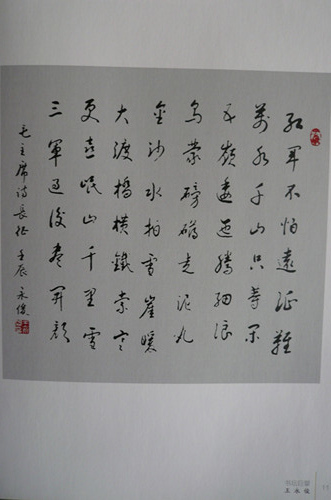 红军不怕远征难
万水千山只等闲
五岭逶迤腾细浪
乌蒙磅礴走泥丸
金沙水拍云崖暖
大渡桥横铁索寒
更喜岷山千里雪
三军过后尽开颜
毛主席诗长征 壬辰 永俊
王永俊
11